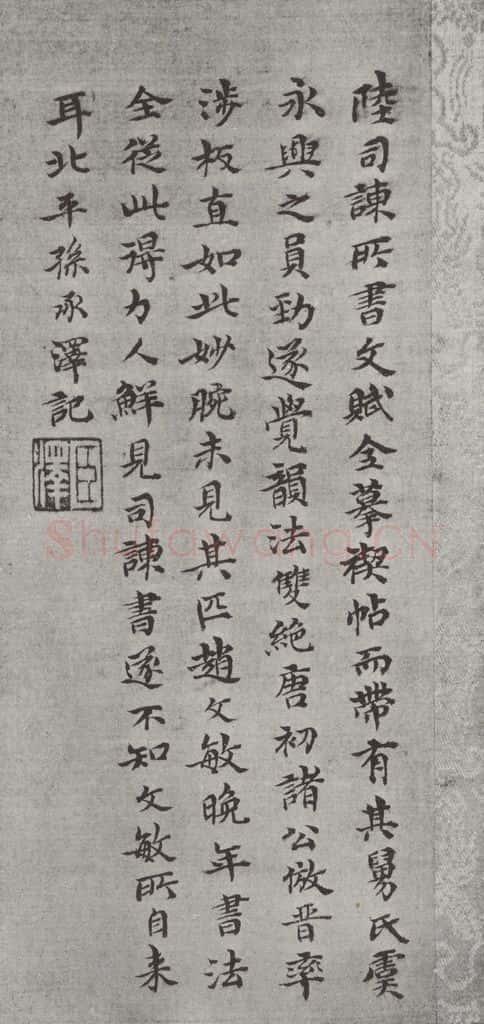 陸司諫所書文賦全摹禊帖而帶有其舅氏虞
永興之員勁遂覺韻法雙絶唐初諸公倣晋率
涉板直如此妙腕未見其匹趙文敏晚年書法
全從此得力人鮮見司諫書遂不知文敏所自来
耳北平孫承澤記
臣澤
Shufawang.CN